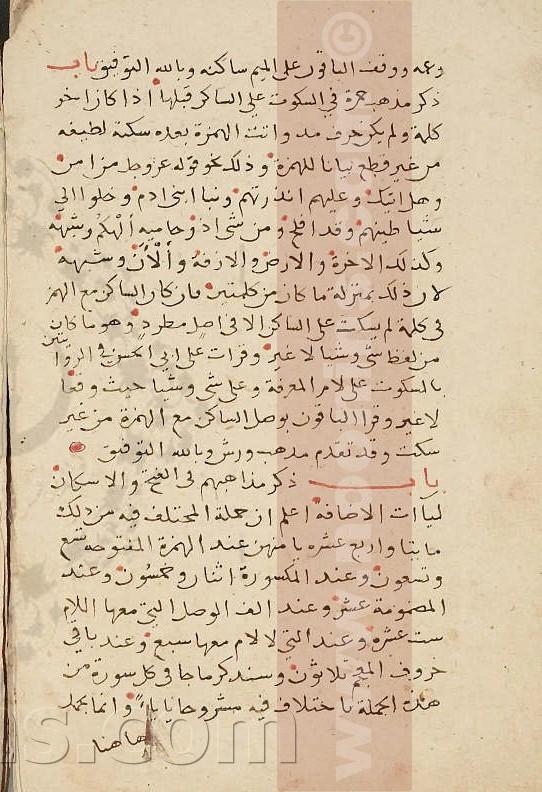 وعمه ووقف الباقون على الميم ساكنه وبالله التوفيق باب
ذكر مذهب حمزة في السكوت على الساكن قبلها اذا كان اخر
كلمة ولم يكن حرف مد واتت الهمزة بعده سكتة لطيفه
من غير قطع بيانا للهمزة وذلك نحو قوله عز وجل من امن
وهل اتيك وعليهم انذرتهم ونبا ابنى ادم وخلوا الى
شياطينهم وقد افلح ومن شى اذ وحاميه الهكم وشبهه
وكذلك الاخرة والارض والازفة والان وشبهه
لان ذلك بمنزلة ما كان من كلمتين فان كان الساكن مع الهمز
في كلمة لم يسكت على الساكن الا في اصل مطرد وهو ما كان
من لفظ شى وشيا لا غير وقرات على ابى الحسن في الروايتين
بالسكوت على لام المعرفة وعلى شى وشيا حيث وقعا
لا غير وقرا الباقون بوصل الساكن مع الهمزة من غير
سكت وقد تقدم مذهب ورش وبالله التوفيق
باب ذكر مذاهبهم في الفتح والاسكان
لياات الاضافة اعلم ان جملة المختلف فيه من ذلك
مايتا واربع عشره يا منهن عند الهمزة المفتوحه تسع
وتسعون وعند المكسورة اثنان وخمسون وعند
المضمومة عشر وعند الف الوصل التي معها اللام
ست عشره وعند التي لا لام معها سبع وعند باقي
حروف المعجم ثلاثون وسنذكر ما جا في كل سورة من
هذه الجملة باختلاف فيه مشروحا يا يا وانما بحمل
هاهنا
© www.
s.com